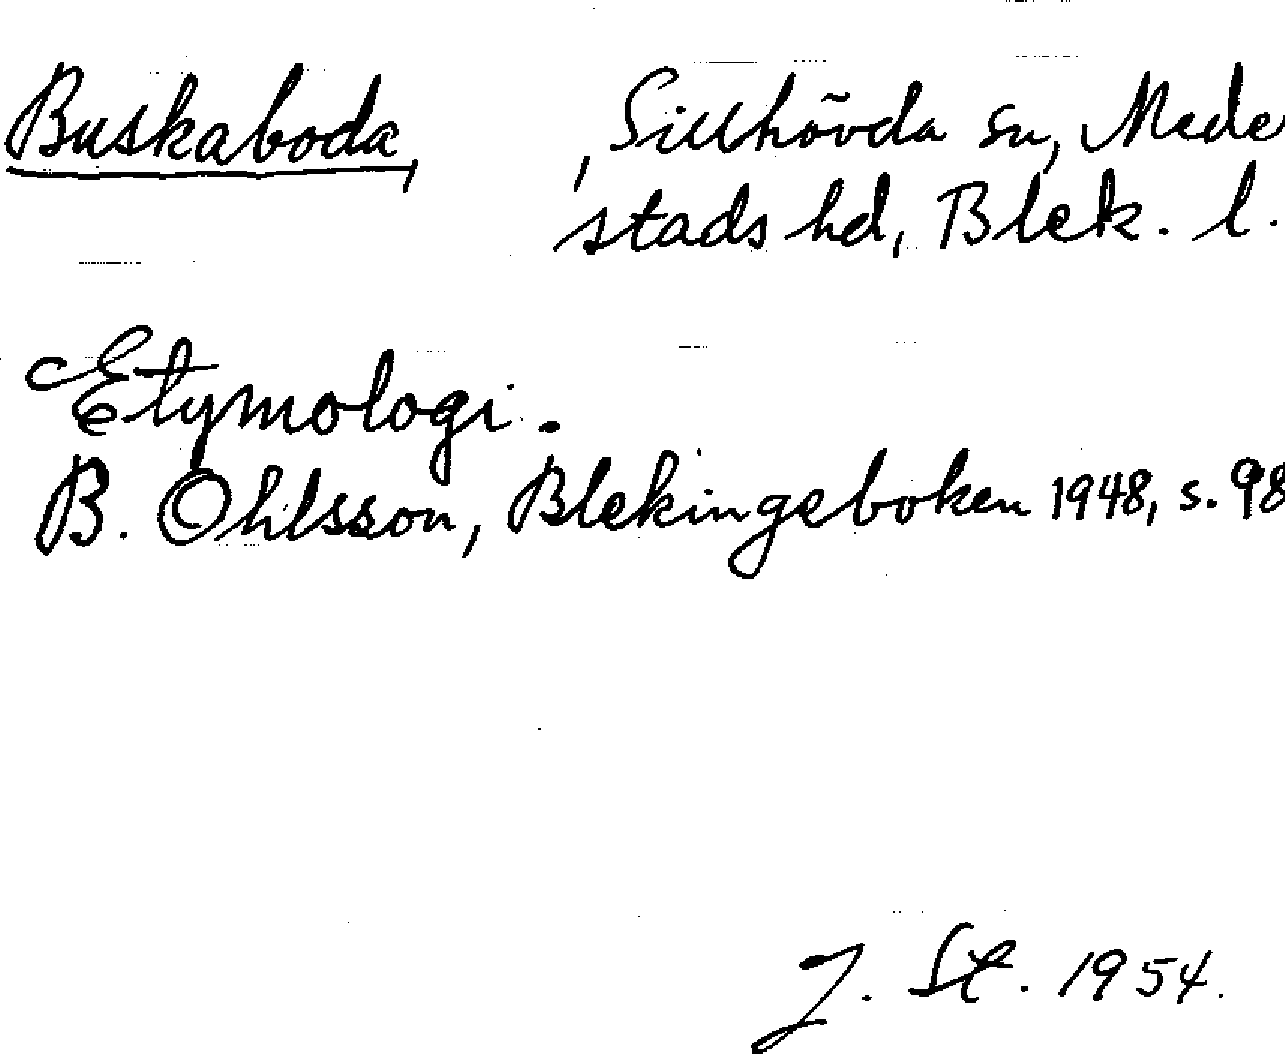 Buskaboda, , Sillhövda sn, Mede
stads hd, Blek. l.
Etymologi.
B. Ohlsson, Blekingeboken 1948, s. 98
J. St. 1954.